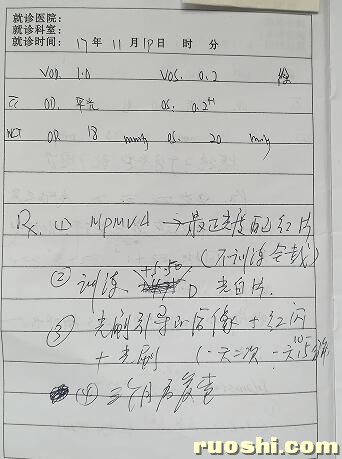 就诊医院:
就诊科室:
就诊时间: 17 年 11 月 19 日 时 分
VOD. 1.0 VOS. 0.2
OD. 平光 OS. 0.2+1
NCT OD. 18 mmHg OS. 20 mmHg
Rx. ① MPMVA → 最正度配红片
(不训练全戴)
② 训练 +5.50 D 光白片.
③ 光刷引导后像 + 红闪
+ 光刷 (一天二次 一次 10 15
④ 三个月后复查
ruoshi.com